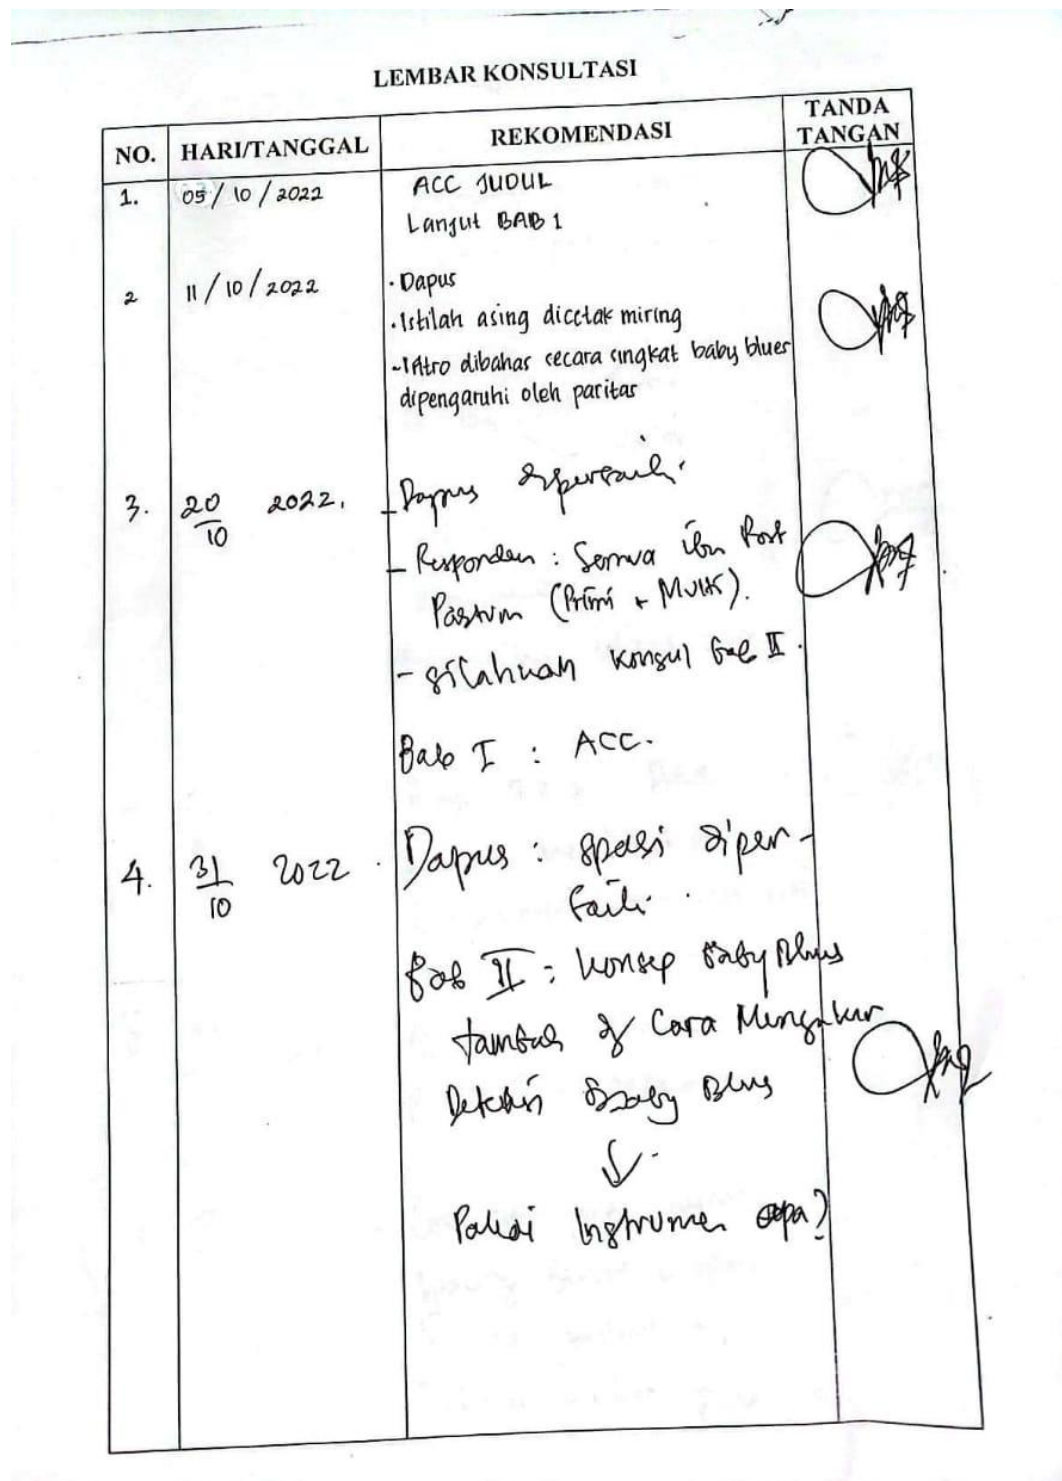 LEMBAR KONSULTASI
NO. HARI/TANGGAL REKOMENDASI TANDA TANGAN
1. 05/10/2022 ACC JUDUL
Lanjut BAB 1
2 11/10/2022 · Dapus
· Istilah asing dicetak miring
- Intro dibahas secara singkat baby blues
dipengaruhi oleh paritas
3. 20/10 2022. - Dapus diperbaiki.
- Responden : Semua ibu Post
Partum (Primi + Multi).
- silahkan konsul Bab II.
Bab I : ACC.
4. 31/10 2022. Dapus : spasi diper-
baiki.
Bab II : Konsep Baby Blues
tambah Cara Mengukur
Deteksi Baby Blues
↓
Pakai Instrumen apa?